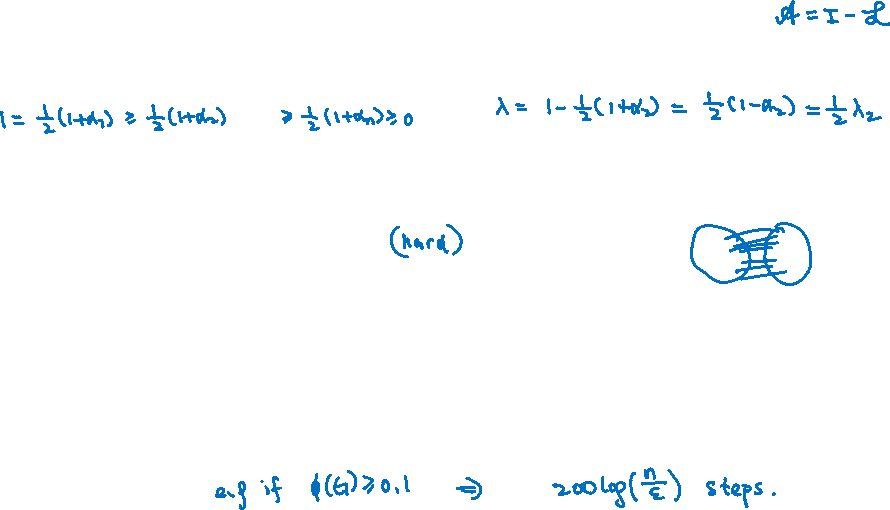 𝒜 = I - ℒ
1 = 1/2 (1+α₁) ≥ 1/2 (1+α₂) ≥ 1/2 (1+αₙ) ≥ 0 λ = 1 - 1/2 (1+α₂) = 1/2 (1-α₂) = 1/2 λ₂
(hard)
e.g if ϕ(G) ≥ 0.1 ⇒ 200 log(n/ε) steps.